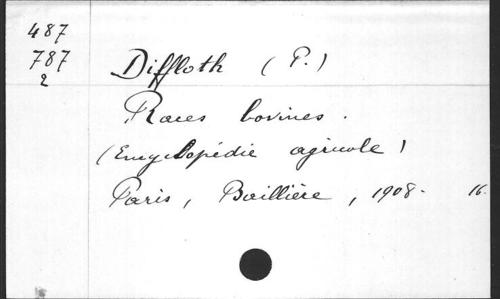 487
787
2
Diffloth (P.)
Races bovines.
(Encyclopédie agricole)
Paris, Baillière, 1908. 16.